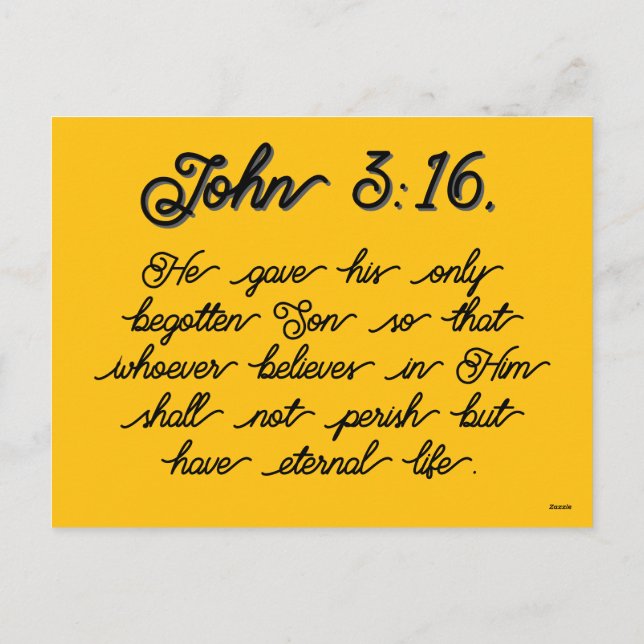 John 3:16.
He gave his only
begotten Son so that
whoever believes in Him
shall not perish but
have eternal life.
Zazzle